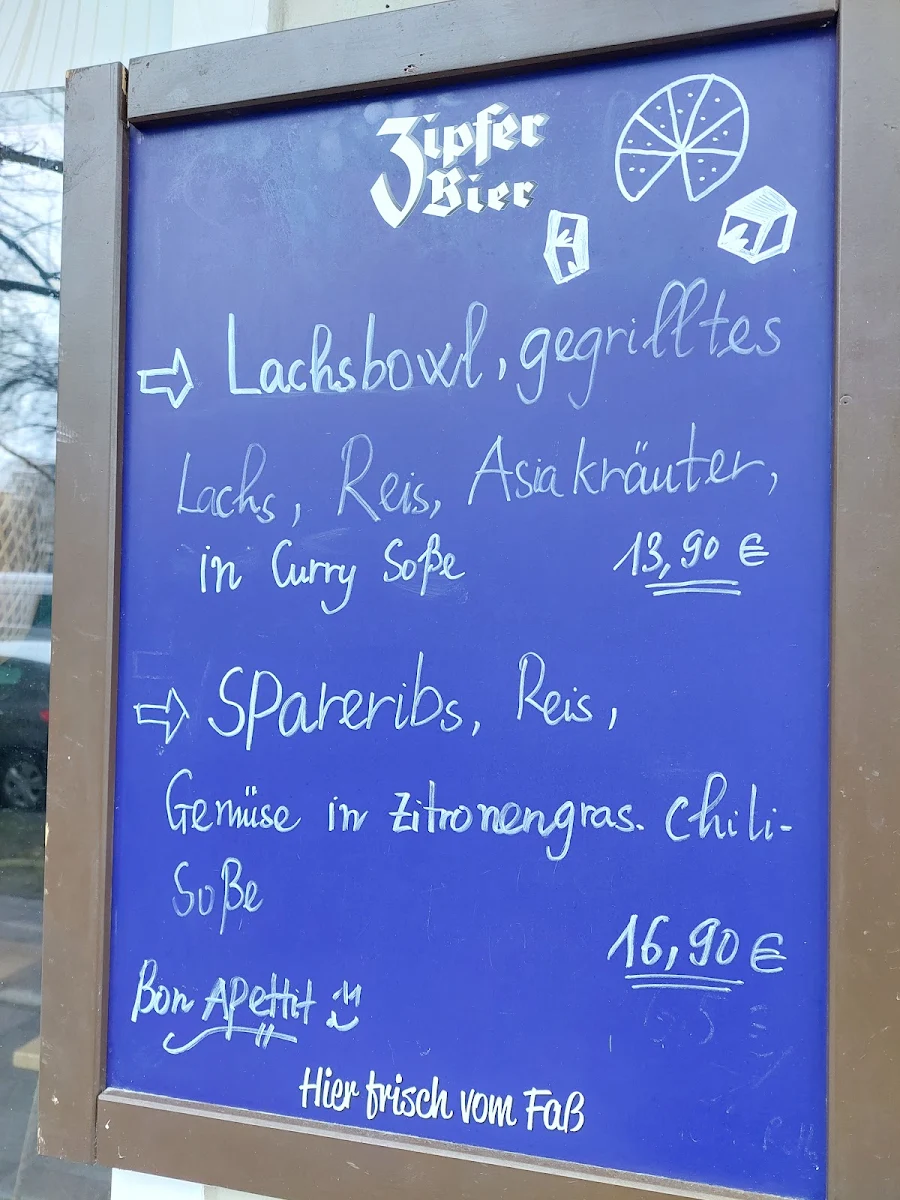 Zipfer
Bier
Lachsbowl, gegrilltes
Lachs, Reis, Asiakräuter,
in Curry Soße 13,90 €
Spareribs, Reis,
Gemüse in Zitronengras. Chili-
Soße
16,90 €
Bon Apettit
Hier frisch vom Faß